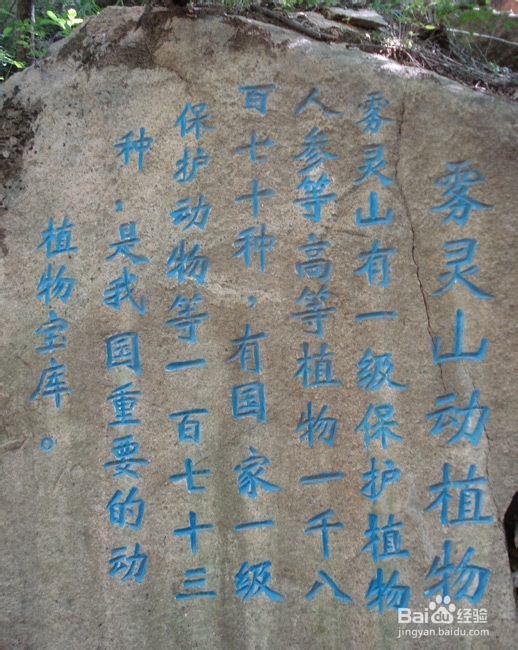 雾灵山动植物
雾灵山有一级保护植物
人参等高等植物一千八
百七十种，有国家一级
保护动物等一百七十三
种，是我国重要的动
植物宝库。
Baidu经验
jingyan.baidu.com